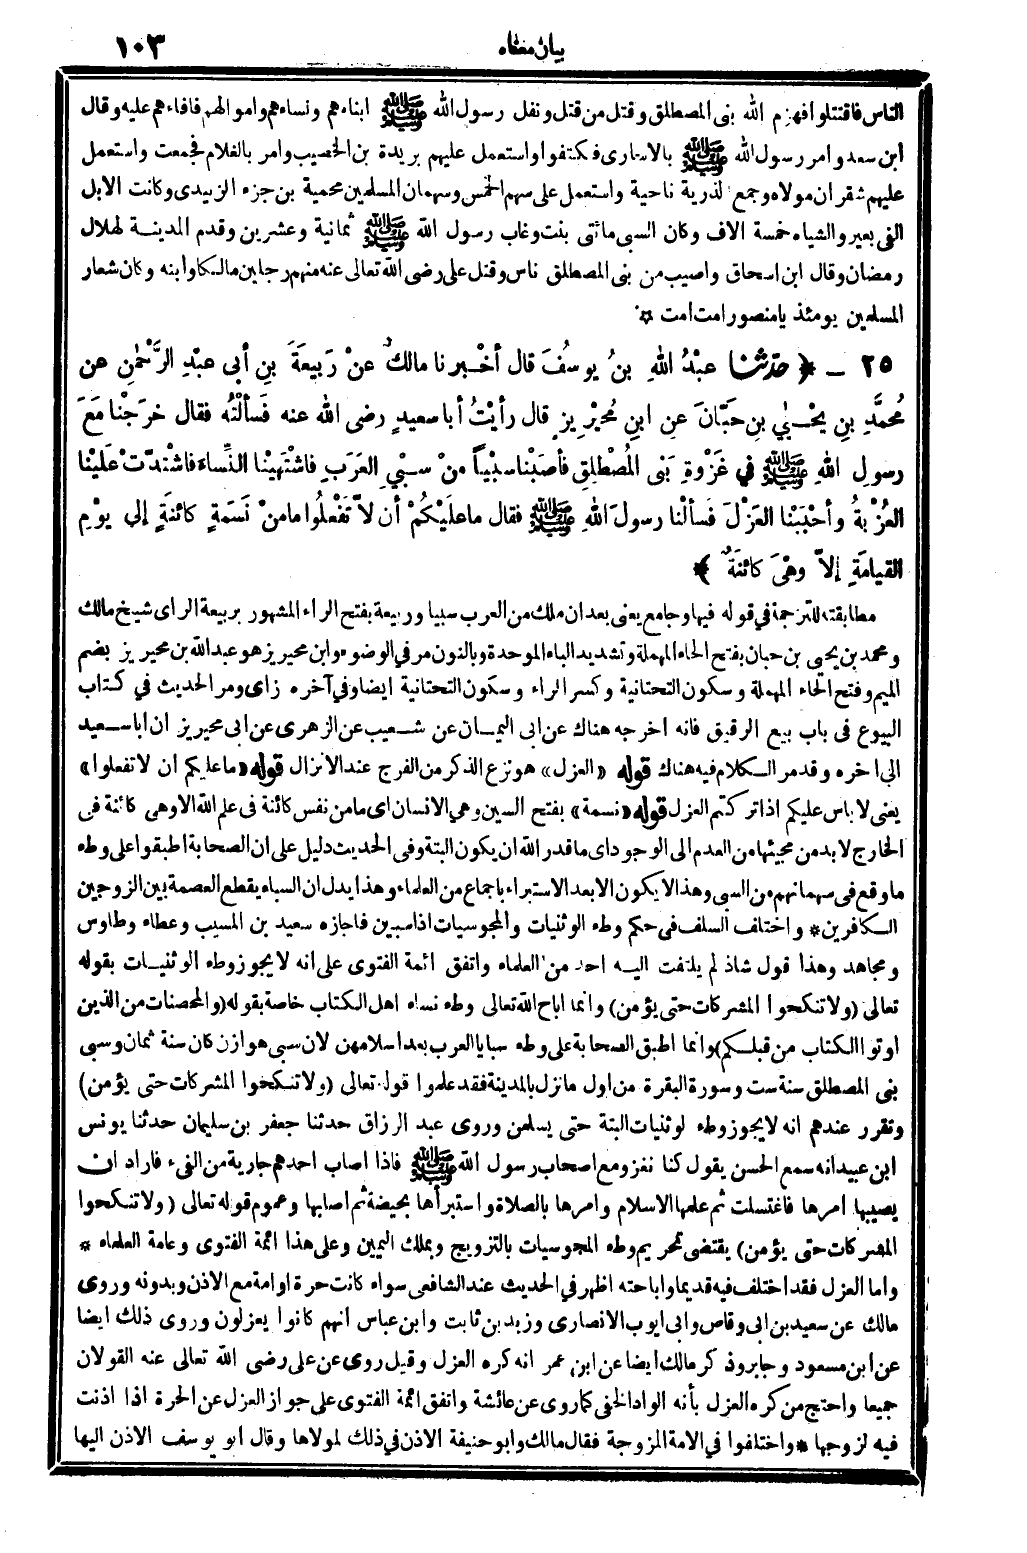 بيان معناه ١٠٣
الناس فاقتتلوا فهزم الله بنى المصطلق وقتل من قتل ونفل رسول الله ﷺ ابناءهم ونساءهم واموالهم فافاءهم عليه وقال
ابن سعد وامر رسول الله ﷺ بالاسارى فكتفوا واستعمل عليهم بريدة بن الحصيب وامر بالغلام فجمعت واستعمل
عليهم شقران مولاه وجمع الذرية ناحية واستعمل على سهم الخمس وسهمان المسلمين محمية بن جزء الزبيدى وكانت الابل
الفى بعير والشياه خمسة الاف وكان السبى مائتى بنت وغاب رسول الله ﷺ ثمانية وعشرين وقدم المدينة لهلال
رمضان وقال ابن اسحاق واصيب من بنى المصطلق ناس وقتل على رضى الله تعالى عنه منهم رجلين مالكا وابنه وكان شعار
المسلمين يومئذ يا منصور امت امت ٭
٢٥ – ﴿ حَدَّثَنَا عَبْدُ اللهِ بنُ يوسُفَ قال أخْبرنا مالكٌ عنْ رَبِيعَةَ بنِ أبى عبْدِ الرَّحْمٰنِ عن
مُحمَّدِ بنِ يحْيىٰ بنِ حَبَّانَ عنِ ابنِ مُحَيْرِيزٍ قال رأيْتُ أبا سعيدٍ رضى الله عنه فَسألْتُه فقال خرَجْنا معَ
رسولِ اللهِ ﷺ في غَزْوةِ بَنى المُصْطلِقِ فأصَبْنا سبْياً منْ سبْيِ العَرَبِ فاشْتَهَيْنا النِّساءَ فاشْتدَّتْ علَيْنا
العُزْبةُ وأحْبَبْنا العَزْلَ فَسألْنا رسولَ اللهِ ﷺ فقال ما علَيْكُمْ أن لاّ تَفْعلُوا مامنْ نَسَمَةٍ كائنَةٍ إلى يوْمِ
القيامَةِ إلاّ وهْىَ كائنَةٌ ﴾
مطابقته للترجمة في قوله فيها وجامع يعنى بعد ان ملك من العرب سبيا وربيعة بفتح الراء المشهور بربيعة الراى شيخ مالك
ومحمد بن يحيى بن حبان بفتح الحاء المهملة وتشديد الباء الموحدة وبالنون مر في الوضوء وابن محيريز هو عبد الله بن محيريز بضم
الميم وفتح الحاء المهملة وسكون التحتانية وكسر الراء وسكون التحتانية ايضا وفي آخره زاى ومر الحديث في كتاب
البيوع فى باب بيع الرقيق فانه اخرجه هناك عن ابى اليمان عن شعيب عن الزهرى عن ابى محيريز ان ابا سعيد
الى اخره وقد مر الكلام فيه هناك قوله «العزل» هو نزع الذكر من الفرج عند الانزال قوله «ما عليكم ان لا تفعلوا»
يعنى لا باس عليكم اذا تركتم العزل قوله «نسمة» بفتح السين وهى الانسان اى ما من نفس كائنة فى علم الله الا وهى كائنة فى
الخارج لا بد من مجيئها من العدم الى الوجود اى ما قدر الله ان يكون البتة وفى الحديث دليل على ان الصحابة اطبقوا على وطء
ما وقع فى سهمانهم من السبى وهذا لا يكون الا بعد الاستبراء باجماع من العلماء وهذا يدل ان السباء يقطع العصمة بين الزوجين
الكافرين ٭ واختلف السلف فى حكم وطء الوثنيات والمجوسيات اذا سبين فاجازه سعيد بن المسيب وعطاء وطاوس
ومجاهد وهذا قول شاذ لم يلتفت اليه احد من العلماء واتفق ائمة الفتوى على انه لا يجوز وطء الوثنيات بقوله
تعالى (ولا تنكحوا المشركات حتى يؤمن) وانما اباح الله تعالى وطء نساء اهل الكتاب خاصة بقوله (والمحصنات من الذين
اوتوا الكتاب من قبلكم) وانما اطبق الصحابة على وطء سبايا العرب بعد اسلامهن لان سبى هوازن كان سنة ثمان وسبى
بنى المصطلق سنة ست وسورة البقرة من اول ما نزل بالمدينة فقد علموا قوله تعالى (ولا تنكحوا المشركات حتى يؤمن)
وتقرر عندهم انه لا يجوز وطء الوثنيات البتة حتى يسلمن وروى عبد الرزاق حدثنا جعفر بن سليمان حدثنا يونس
ابن عبيد انه سمع الحسن يقول كنا نغزو مع اصحاب رسول الله ﷺ فاذا اصاب احدهم جارية من الفىء فاراد ان
يصيبها امرها فاغتسلت ثم علمها الاسلام وامرها بالصلاة واستبرأها بحيضة ثم اصابها وعموم قوله تعالى (ولا تنكحوا
المشركات حتى يؤمن) يقتضى تحريم وطء المجوسيات بالتزويج وبملك اليمين وعلى هذا ائمة الفتوى وعامة العلماء ٭
واما العزل فقد اختلف فيه قديما واباحته اظهر في الحديث عند الشافعى سواء كانت حرة او امة مع الاذن وبدونه وروى
مالك عن سعيد بن ابى وقاص وابى ايوب الانصارى وزيد بن ثابت وابن عباس انهم كانوا يعزلون وروى ذلك ايضا
عن ابن مسعود وجابر وذكر مالك ايضا عن ابن عمر انه كره العزل وقيل روى عن على رضى الله تعالى عنه القولان
جميعا واحتج من كره العزل بأنه الواد الخفى كما روى عن عائشة واتفق ائمة الفتوى على جواز العزل عن الحرة اذا اذنت
فيه لزوجها ٭ واختلفوا في الامة المزوجة فقال مالك وابو حنيفة الاذن في ذلك لمولاها وقال ابو يوسف الاذن اليها